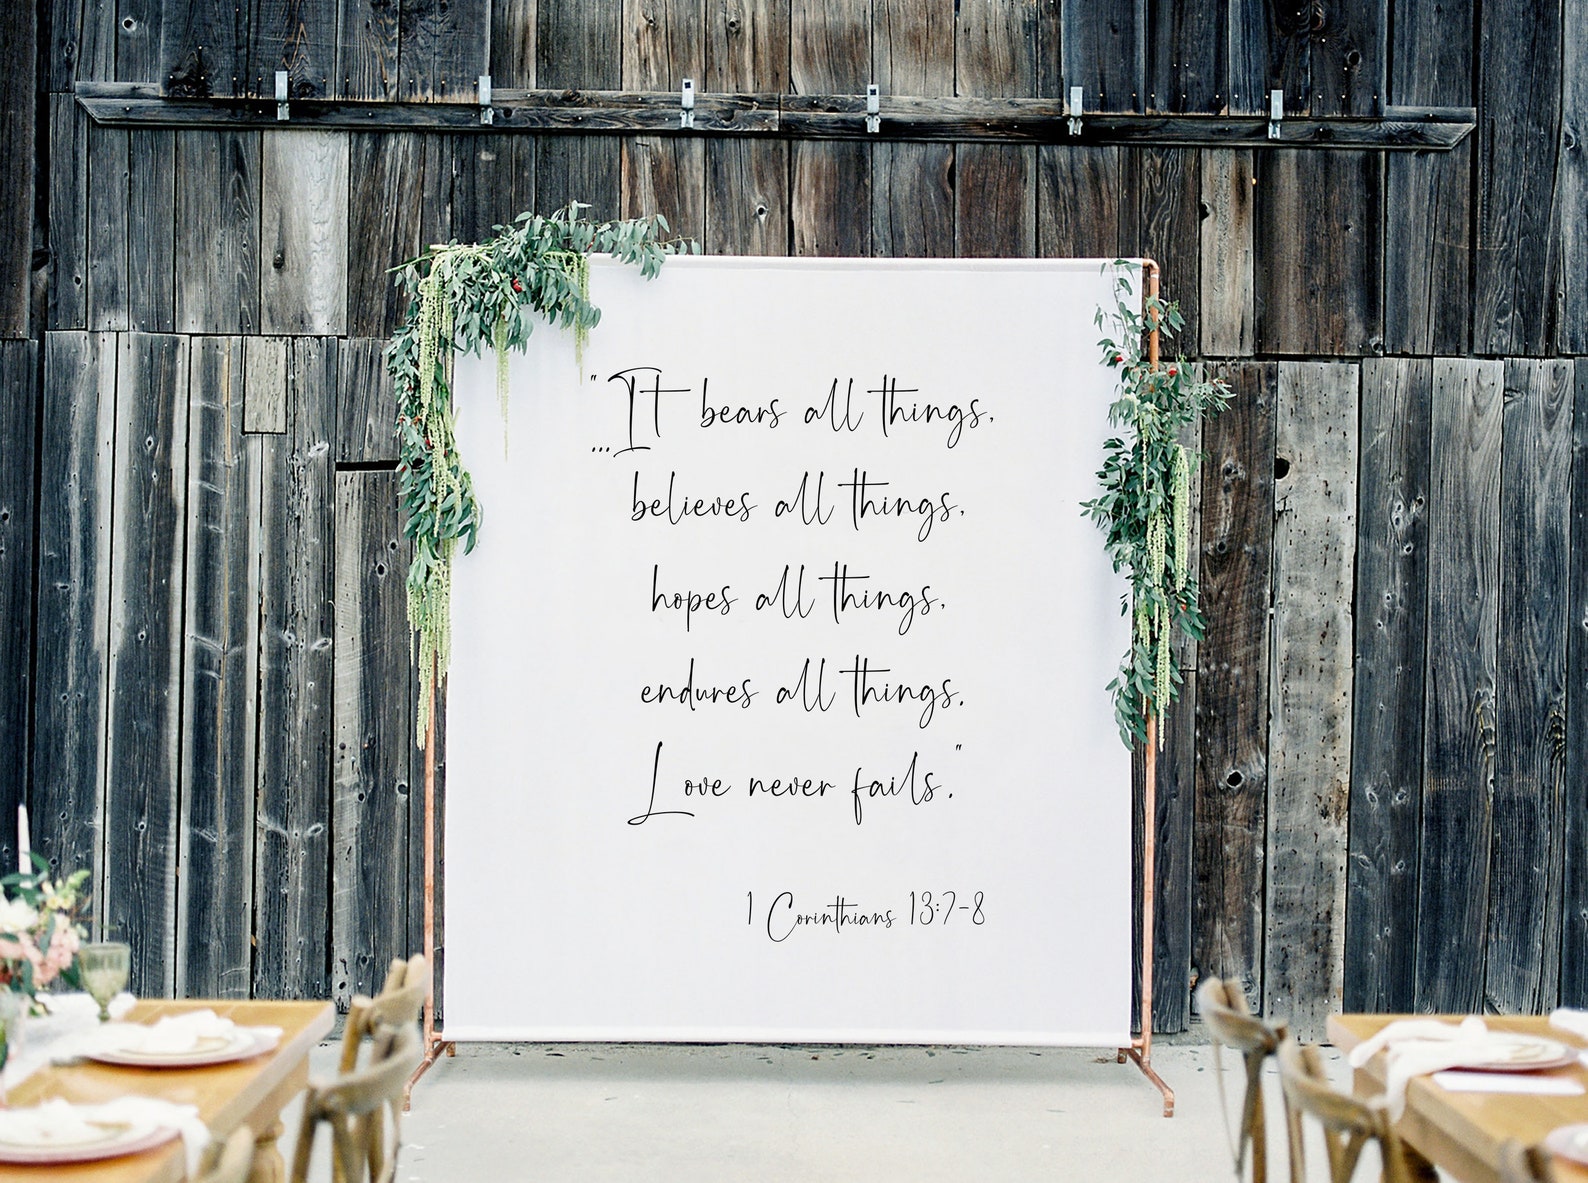 "...It bears all things,
believes all things,
hopes all things,
endures all things.
Love never fails."
1 Corinthians 13:7-8